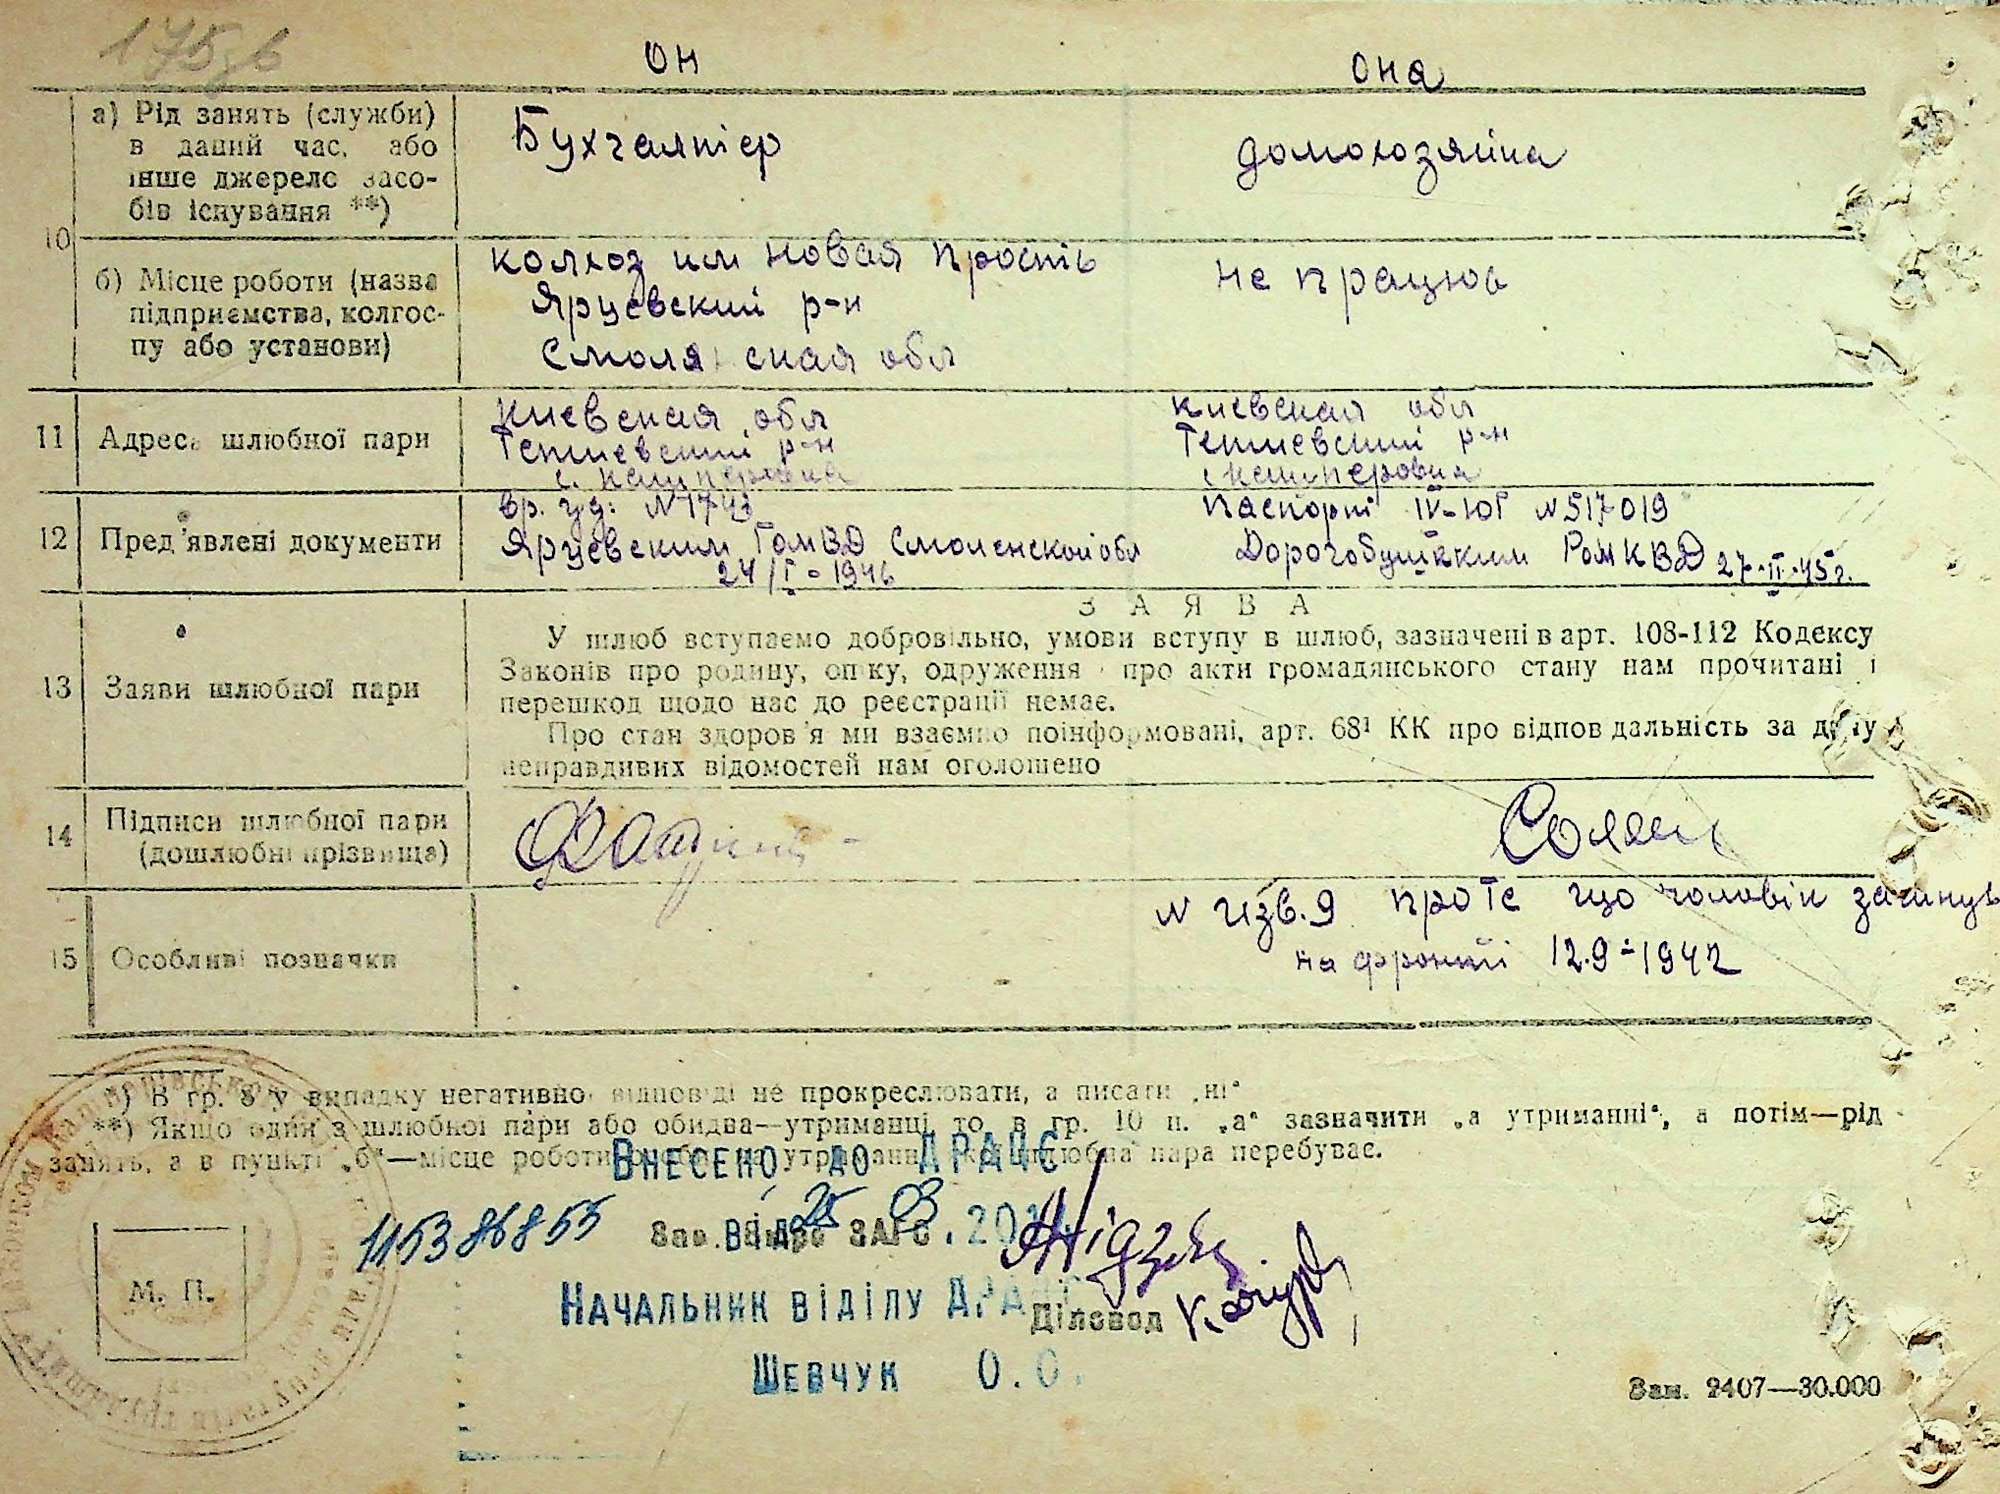 он она
10
а) Рід занять (служби)
в даний час, або
інше джерело засо-
бів існування **)
Бухгалтер
домохозяйка
б) Місце роботи (назва
підприємства, колгос-
пу або установи)
колхоз им новая
Ярцевский р-н
обл
не працює
11 Адреса шлюбної пари
Киевская обл
р-н
Киевская обл
р-н
12 Пред'явлені документи
вр. уд: N 1743
Ярцевским ГоМВД Смоленской обл
24/I-1946
Паспорт IV-ЮГ N 517019
РОМ КВД 27-II-45г.
13 Заяви шлюбної пари
ЗАЯВА
У шлюб вступаємо добровільно, умови вступу в шлюб, зазначені в арт. 108-112 Кодексу
Законів про родину, опіку, одруження про акти громадянського стану нам прочитані і
перешкод щодо нас до реєстрації немає.
Про стан здоров'я ми взаємно поінформовані, арт. 68¹ КК про відповідальність за дачу
неправдивих відомостей нам оголошено
14 Підписи шлюбної пари
(дошлюбні прізвища)
15 Особливі позначки
N изв. 9 про те що чоловік загинув
на фронті 12.9-1942
*) В гр. 8 у випадку негативної відповіді не прокреслювати, а писати „ні“
**) Якщо один з шлюбної пари або обидва—утриманці, то в гр. 10 п. „а“ зазначити „а утриманні“, а потім—рід
занять, а в пункті „б“—місце роботи пара перебуває.
Внесено до ДРАЦС
11538б855
25 03
Зав. ЗАГС
Начальник відділу ДРАЦС
Діловод
Шевчук О.О.
М. П.
Зам. 2407—30.000